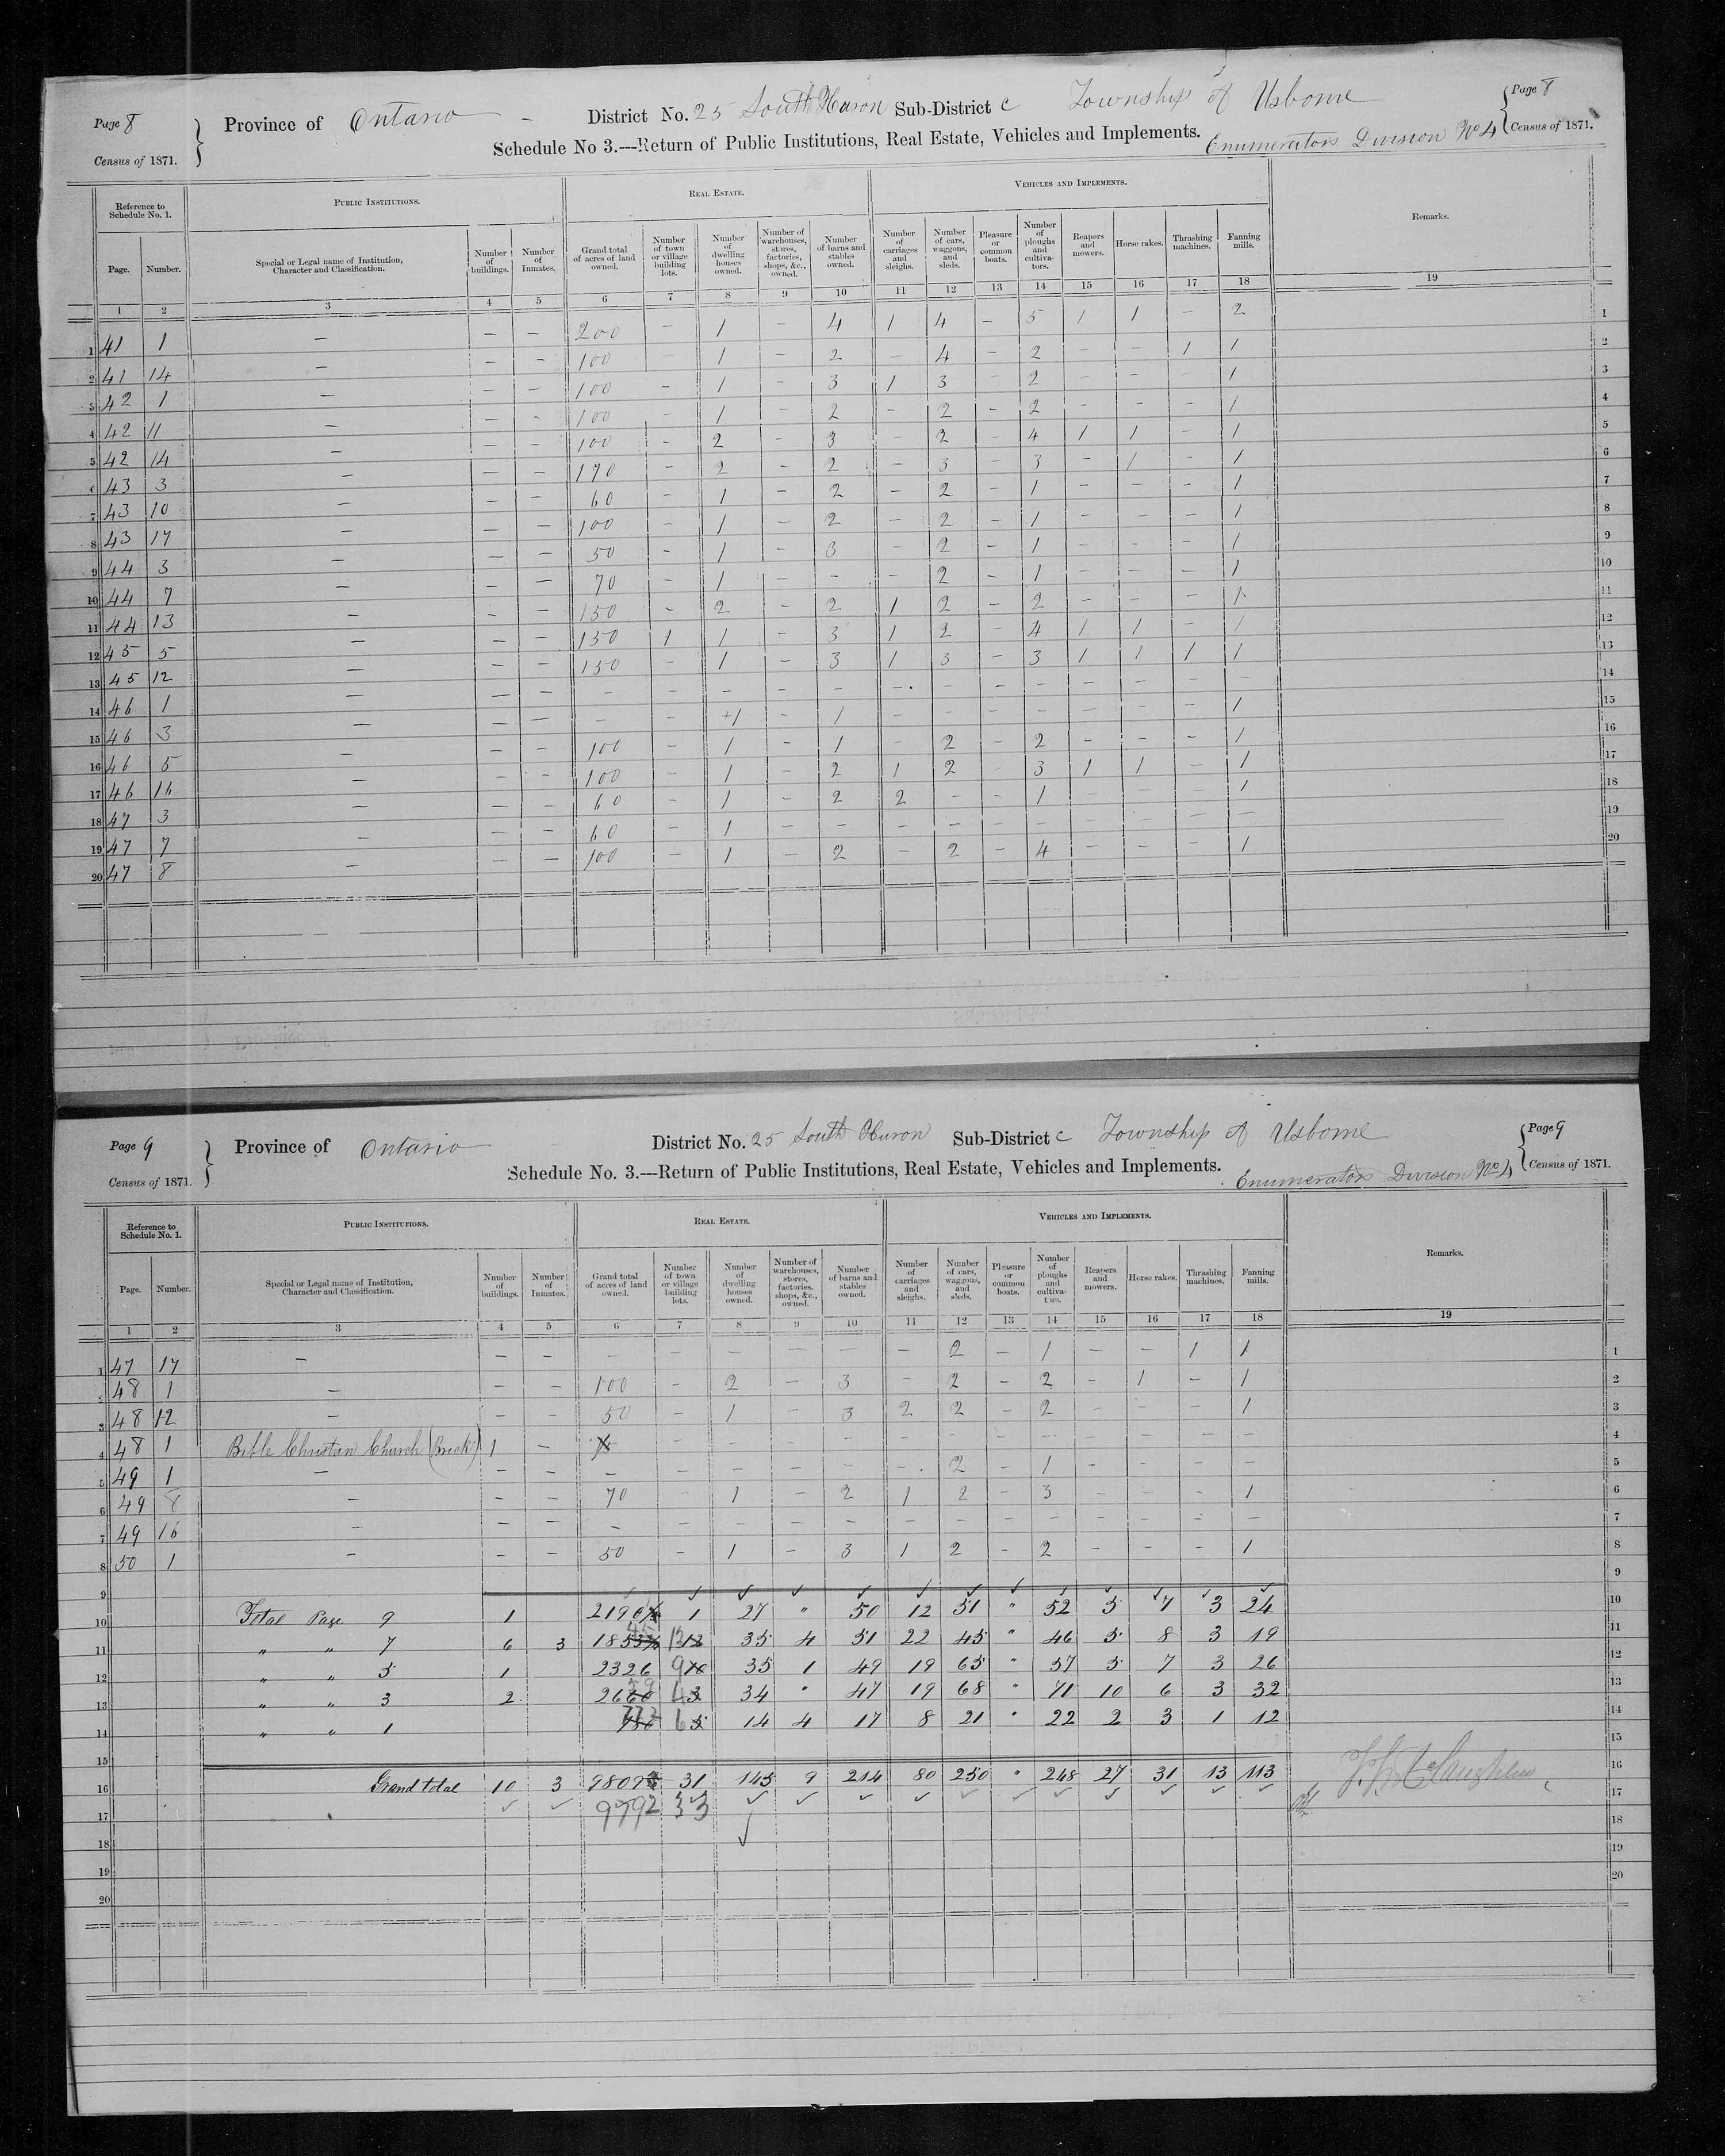 Page 8
Census of 1871.
Province of Ontario
District No. 25 South Huron Sub-District c Township of Usborne
Page 8
Census of 1871.
Schedule No 3.---Return of Public Institutions, Real Estate, Vehicles and Implements.
Enumerators Division No 4
Reference to Schedule No. 1.
PUBLIC INSTITUTIONS.
REAL ESTATE.
VEHICLES AND IMPLEMENTS.
Remarks.
Page. Number. Special or Legal name of Institution, Character and Classification. Number of buildings. Number of Inmates. Grand total of acres of land owned. Number of town or village building lots. Number of dwelling houses owned. Number of warehouses, stores, factories, shops, &c., owned. Number of barns and stables owned. Number of carriages and sleighs. Number of cars, waggons, and sleds. Pleasure or common boats. Number of ploughs and cultivators. Reapers and mowers. Horse rakes. Thrashing machines. Fanning mills.
1 2 3 4 5 6 7 8 9 10 11 12 13 14 15 16 17 18 19
1 41 1 — — — 200 — 1 — 4 1 4 — 5 1 1 — 2 1
2 41 14 — — — 100 — 1 — 2 — 4 — 2 — — 1 1 2
3 42 1 — — — 100 — 1 — 3 1 3 — 2 — — — 1 3
4 42 11 — — — 100 — 1 — 2 — 2 — 2 — — — 1 4
5 42 14 — — — 100 — 2 — 3 — 2 — 4 1 1 — 1 5
6 43 3 — — — 170 — 2 — 2 — 3 — 3 — 1 — 1 6
7 43 10 — — — 60 — 1 — 2 — 2 — 1 — — — 1 7
8 43 17 — — — 100 — 1 — 2 — 2 — 1 — — — 1 8
9 44 3 — — — 50 — 1 — 3 — 2 — 1 — — — 1 9
10 44 7 — — — 70 — 1 — — — 2 — 1 — — — 1 10
11 44 13 — — — 150 — 2 — 2 1 2 — 2 — — — 1 11
12 45 5 — — — 150 1 1 — 3 1 2 — 4 1 1 — 1 12
13 45 12 — — — 150 — 1 — 3 1 3 — 3 1 1 1 1 13
14 46 1 — — — — — — — — — — — — — — — — 14
15 46 3 — — — — +1 — 1 — — — — — — — 1 15
16 46 5 — — — 100 — 1 — 1 — 2 — 2 — — — 1 16
17 46 16 — — — 100 — 1 — 2 1 2 — 3 1 1 — 1 17
18 47 3 — — — 60 — 1 — 2 2 — — 1 — — — 1 18
19 47 7 — — — 60 — 1 — — — — — — — — — — 19
20 47 8 — — — 100 — 1 — 2 — 2 — 4 — — — 1 20
Page 9
Census of 1871.
Province of Ontario
District No. 25 South Huron Sub-District c Township of Usborne
Page 9
Census of 1871.
Schedule No. 3.---Return of Public Institutions, Real Estate, Vehicles and Implements.
Enumerators Division No 4
Reference to Schedule No. 1.
PUBLIC INSTITUTIONS.
REAL ESTATE.
VEHICLES AND IMPLEMENTS.
Remarks.
Page. Number. Special or Legal name of Institution, Character and Classification. Number of buildings. Number of Inmates. Grand total of acres of land owned. Number of town or village building lots. Number of dwelling houses owned. Number of warehouses, stores, factories, shops, &c., owned. Number of barns and stables owned. Number of carriages and sleighs. Number of cars, waggons, and sleds. Pleasure or common boats. Number of ploughs and cultivators. Reapers and mowers. Horse rakes. Thrashing machines. Fanning mills.
1 2 3 4 5 6 7 8 9 10 11 12 13 14 15 16 17 18 19
1 47 17 — — — — — — — — — 2 — 1 — — 1 1 1
2 48 1 — — — 100 — 2 — 3 — 2 — 2 — 1 — 1 2
3 48 12 — — — 50 — 1 — 3 2 2 — 2 — — — 1 3
4 48 1 Bible Christian Church (Brick) 1 — — — — — — — — — — — — — 4
5 49 1 — — — — — — — — — 2 — 1 — — — — 5
6 49 8 — — — 70 — 1 — 2 1 2 — 3 — — — 1 6
7 49 16 — — — — — — — — — — — — — — — 7
8 50 1 — — — 50 — 1 — 3 1 2 — 2 — — — 1 8
9 9
10 Total Page 9 1 2190 1 27 " 50 12 51 " 52 5 7 3 24 10
11 " " 7 6 3 1853 12 35 4 51 22 45 " 46 5 8 3 19 11
12 " " 5 1 2326 9 35 1 49 19 65 " 57 5 7 3 26 12
13 " " 3 2 2660 4 34 " 47 19 68 " 71 10 6 3 32 13
14 " " 1 772 6 14 4 17 8 21 " 22 2 3 1 12 14
15 15
16 Grand total 10 3 9809 31 145 9 214 80 250 " 248 27 31 13 113 16
17 9792 33 17
18 18
19 19
20 20